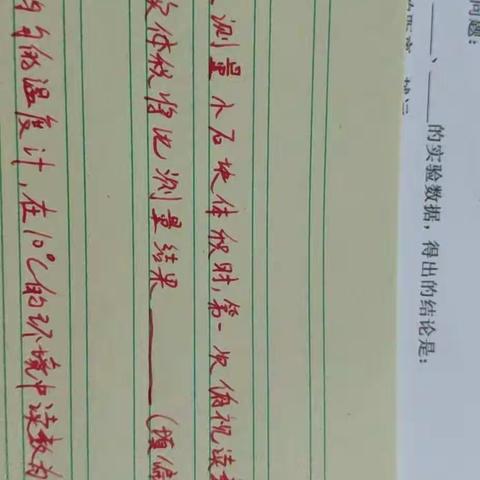 问题:
的实验数据，得出的结论是:
测量小石块体积时,第一次俯视读
次体积将比测量结果______(填偏
的温度计,在10℃的环境中读数为